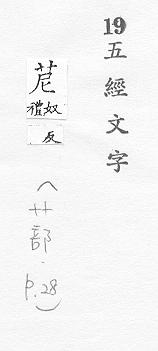 19五經文字
苨
奴禮
反
(艹部.p.28)